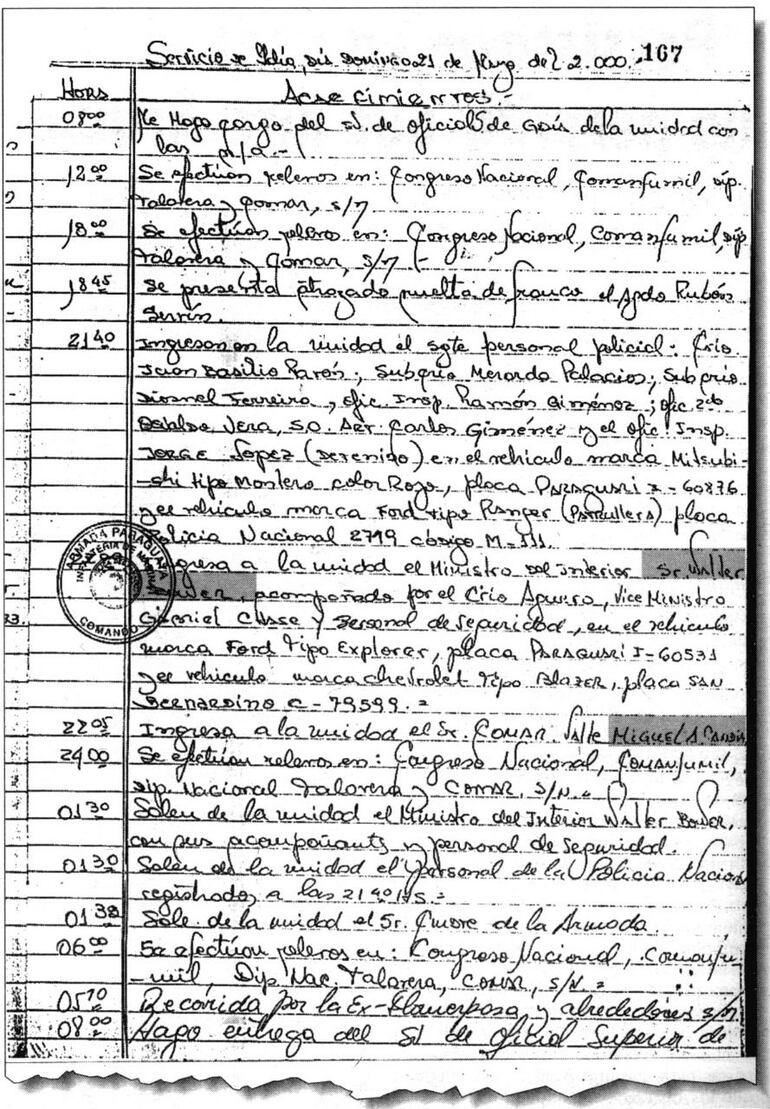 Servicio de Día, Domingo 21 de Mayo del 2.000. 167
HORS
08⁰⁰ Me Hago cargo del de oficial de de la unidad con
las
12⁰⁰ Se efectúan relevos en: Congreso Nacional, Comanfumil, Dip.
Talavera y Comar, s/n
18⁰⁰ Se efectúan relevos en: Congreso Nacional, Comanfumil, Dip
Talavera y Comar, s/n
18⁴⁵ Se presenta atrazado vuelta de franco el Rubén
21⁴⁰ Ingresan en la unidad el sgte personal policial: Crio
Juan Basilio Pavón; Subcrio Merardo Palacios; Subcrio
Dionel Ferreira, Ofic. Insp. Ramón Giménez; Ofic 2do
Osvaldo Vera, S.O. Carlos Giménez y el Ofic. Insp.
JORGE López (Detenido) en el vehiculo marca Mitsubi-
-chi tipo Montero color Rojo, placa PARAGUARI - 60876
y el vehiculo marca Ford tipo Ranger (PATRULLERA) placa
Policia Nacional 2799 código M-111.
Ingresa a la unidad el Ministro del Interior Sr. Walter
Bower, acompañado por el Crio Aguero, Vice Ministro
Gabriel y Personal de Seguridad, en el vehiculo
marca Ford Tipo Explorer, placa PARAGUARI I-60531
y el vehiculo marca chevrolet tipo BLAZER, placa SAN
BERNARDINO C-79599.=
ARMADA PARAGUAYA
INFANTERIA DE MARINA
COMANDO
22⁰⁵ Ingresa a la unidad el Sr. COMAR, MIGUEL A
24⁰⁰ Se efectúan relevos en: Congreso Nacional, COMANFUMIL,
Dip. Nacional Talavera y COMAR, S/N.=
01³⁰ Salen de la unidad el Ministro del Interior Walter Bower,
con sus acompañantes y personal de Seguridad.
01³⁰ Salen de la unidad el personal de la Policia Nacional
registrados a las 21⁴⁰ HS.=
01³² Sale de la unidad el Sr. de la Armada
06⁰⁰ Se efectúan relevos en: Congreso Nacional, Comanfu-
-mil, Dip. Nac. Talavera, COMAR, S/N =
05¹⁰ Recorrida por la Ex- y alrededores s/n
08⁰⁰ Hago entrega del de oficial Superior de